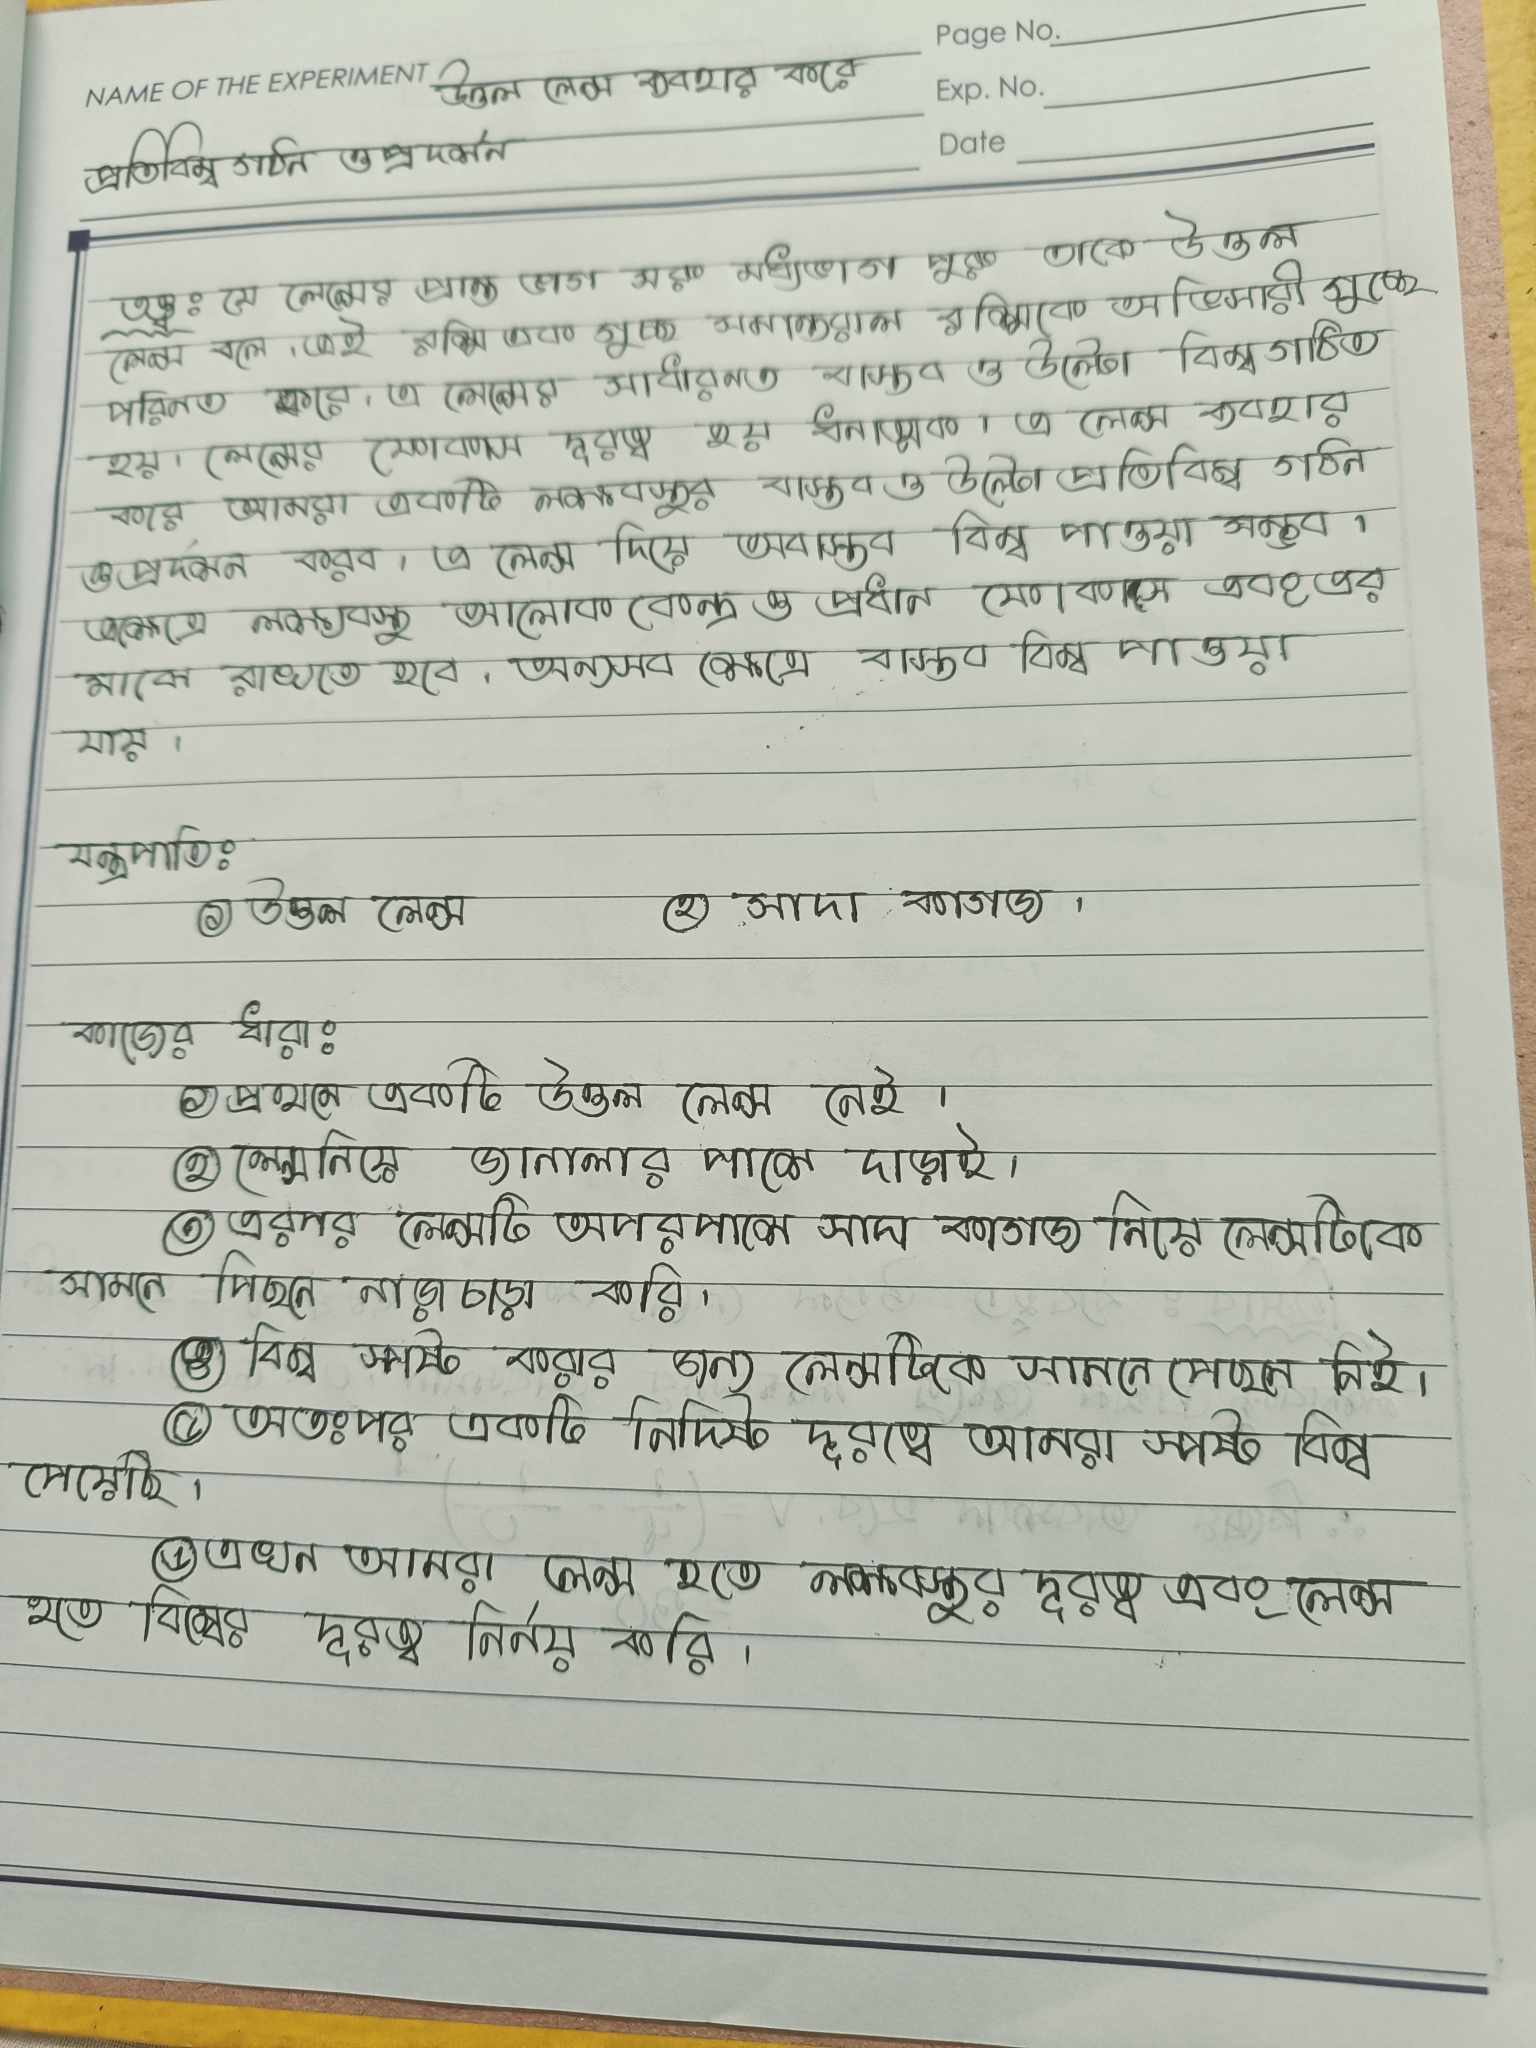 NAME OF THE EXPERIMENT উত্তল লেন্স ব্যবহার করে
Page No.
Exp. No.
প্রতিবিম্ব গঠন ও প্রদর্শন
Date
তত্ত্বঃ যে লেন্সের প্রান্ত ভাগ সরু মধ্যভাগ পুরু তাকে উত্তল
লেন্স বলে। এই রশ্মি একগুচ্ছ সমান্তরাল রশ্মিকে অভিসারী গুচ্ছে
পরিনত করে। এ লেন্সের সাধারনত বাস্তব ও উল্টো বিম্ব গঠিত
হয়। লেন্সের ফোকাস দূরত্ব হয় ধনাত্মক। এ লেন্স ব্যবহার
করে আমরা একটি লক্ষবস্তুর বাস্তব ও উল্টো প্রতিবিম্ব গঠন
ও প্রদর্শন করব। এ লেন্স দিয়ে অবাস্তব বিম্ব পাওয়া সম্ভব।
এক্ষেত্রে লক্ষ্যবস্তু আলোক কেন্দ্র ও প্রধান ফোকাস এবং এর
মাঝে রাখতে হবে। অন্যসব ক্ষেত্রে বাস্তব বিম্ব পাওয়া
যায়।
যন্ত্রপাতিঃ
১ উত্তল লেন্স ২ সাদা কাগজ।
কাজের ধারাঃ
১ প্রথমে একটি উত্তল লেন্স নেই।
২ লেন্স নিয়ে জানালার পাশে দাড়াই।
৩ এরপর লেন্সটি অপরপাশে সাদা কাগজ নিয়ে লেন্সটিকে
সামনে পিছনে নাড়াচাড়া করি।
৪ বিম্ব স্পষ্ট করার জন্য লেন্সটিকে সামনে পেছনে নিই।
৫ অতঃপর একটি নির্দিষ্ট দূরত্বে আমরা স্পষ্ট বিম্ব
পেয়েছি।
এখন আমরা লেন্স হতে লক্ষবস্তুর দূরত্ব এবং লেন্স
হতে বিম্বের দূরত্ব নির্নয় করি।